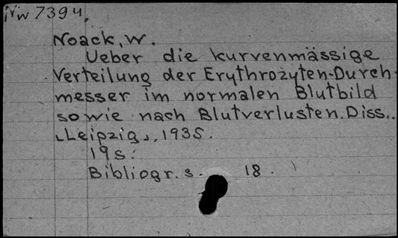 Nw 7394.
Noack, W.
Ueber die kurvenmässige
Verteilung der Erythrozyten-Durch-
messer im normalen Blutbild
sowie nach Blutverlusten. Diss..
„Leipzig„, 1935.
19 s.
Bibliogr. s. 18.